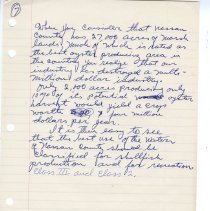 When you consider that Nassau
County has 27,000 acres of marsh
lands, much of which is rated as
the best oyster producing area in
the country you realize that our
industry has destroyed a multi-
million dollar industry.
Only 2,100 acres producing only
10% of its potential oyster
harvest would yield a crop
worth four million
dollars per year.
It is thus easy to see
that the best use of the waters
of Nassau County should be
classified for shellfish
production and for recreation
Class III and Class 2.